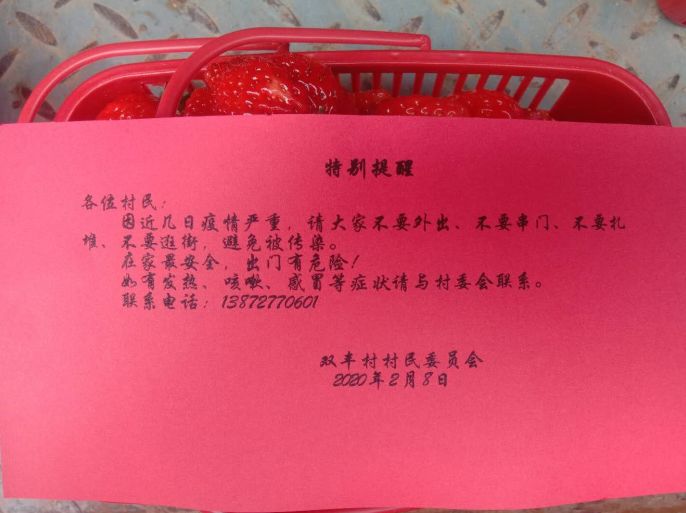 特别提醒
各位村民：
因近几日疫情严重，请大家不要外出、不要串门、不要扎
堆、不要逛街，避免被传染。
在家最安全，出门有危险！
如有发热、咳嗽、感冒等症状请与村委会联系。
联系电话：13872770601
双丰村村民委员会
2020年2月8日